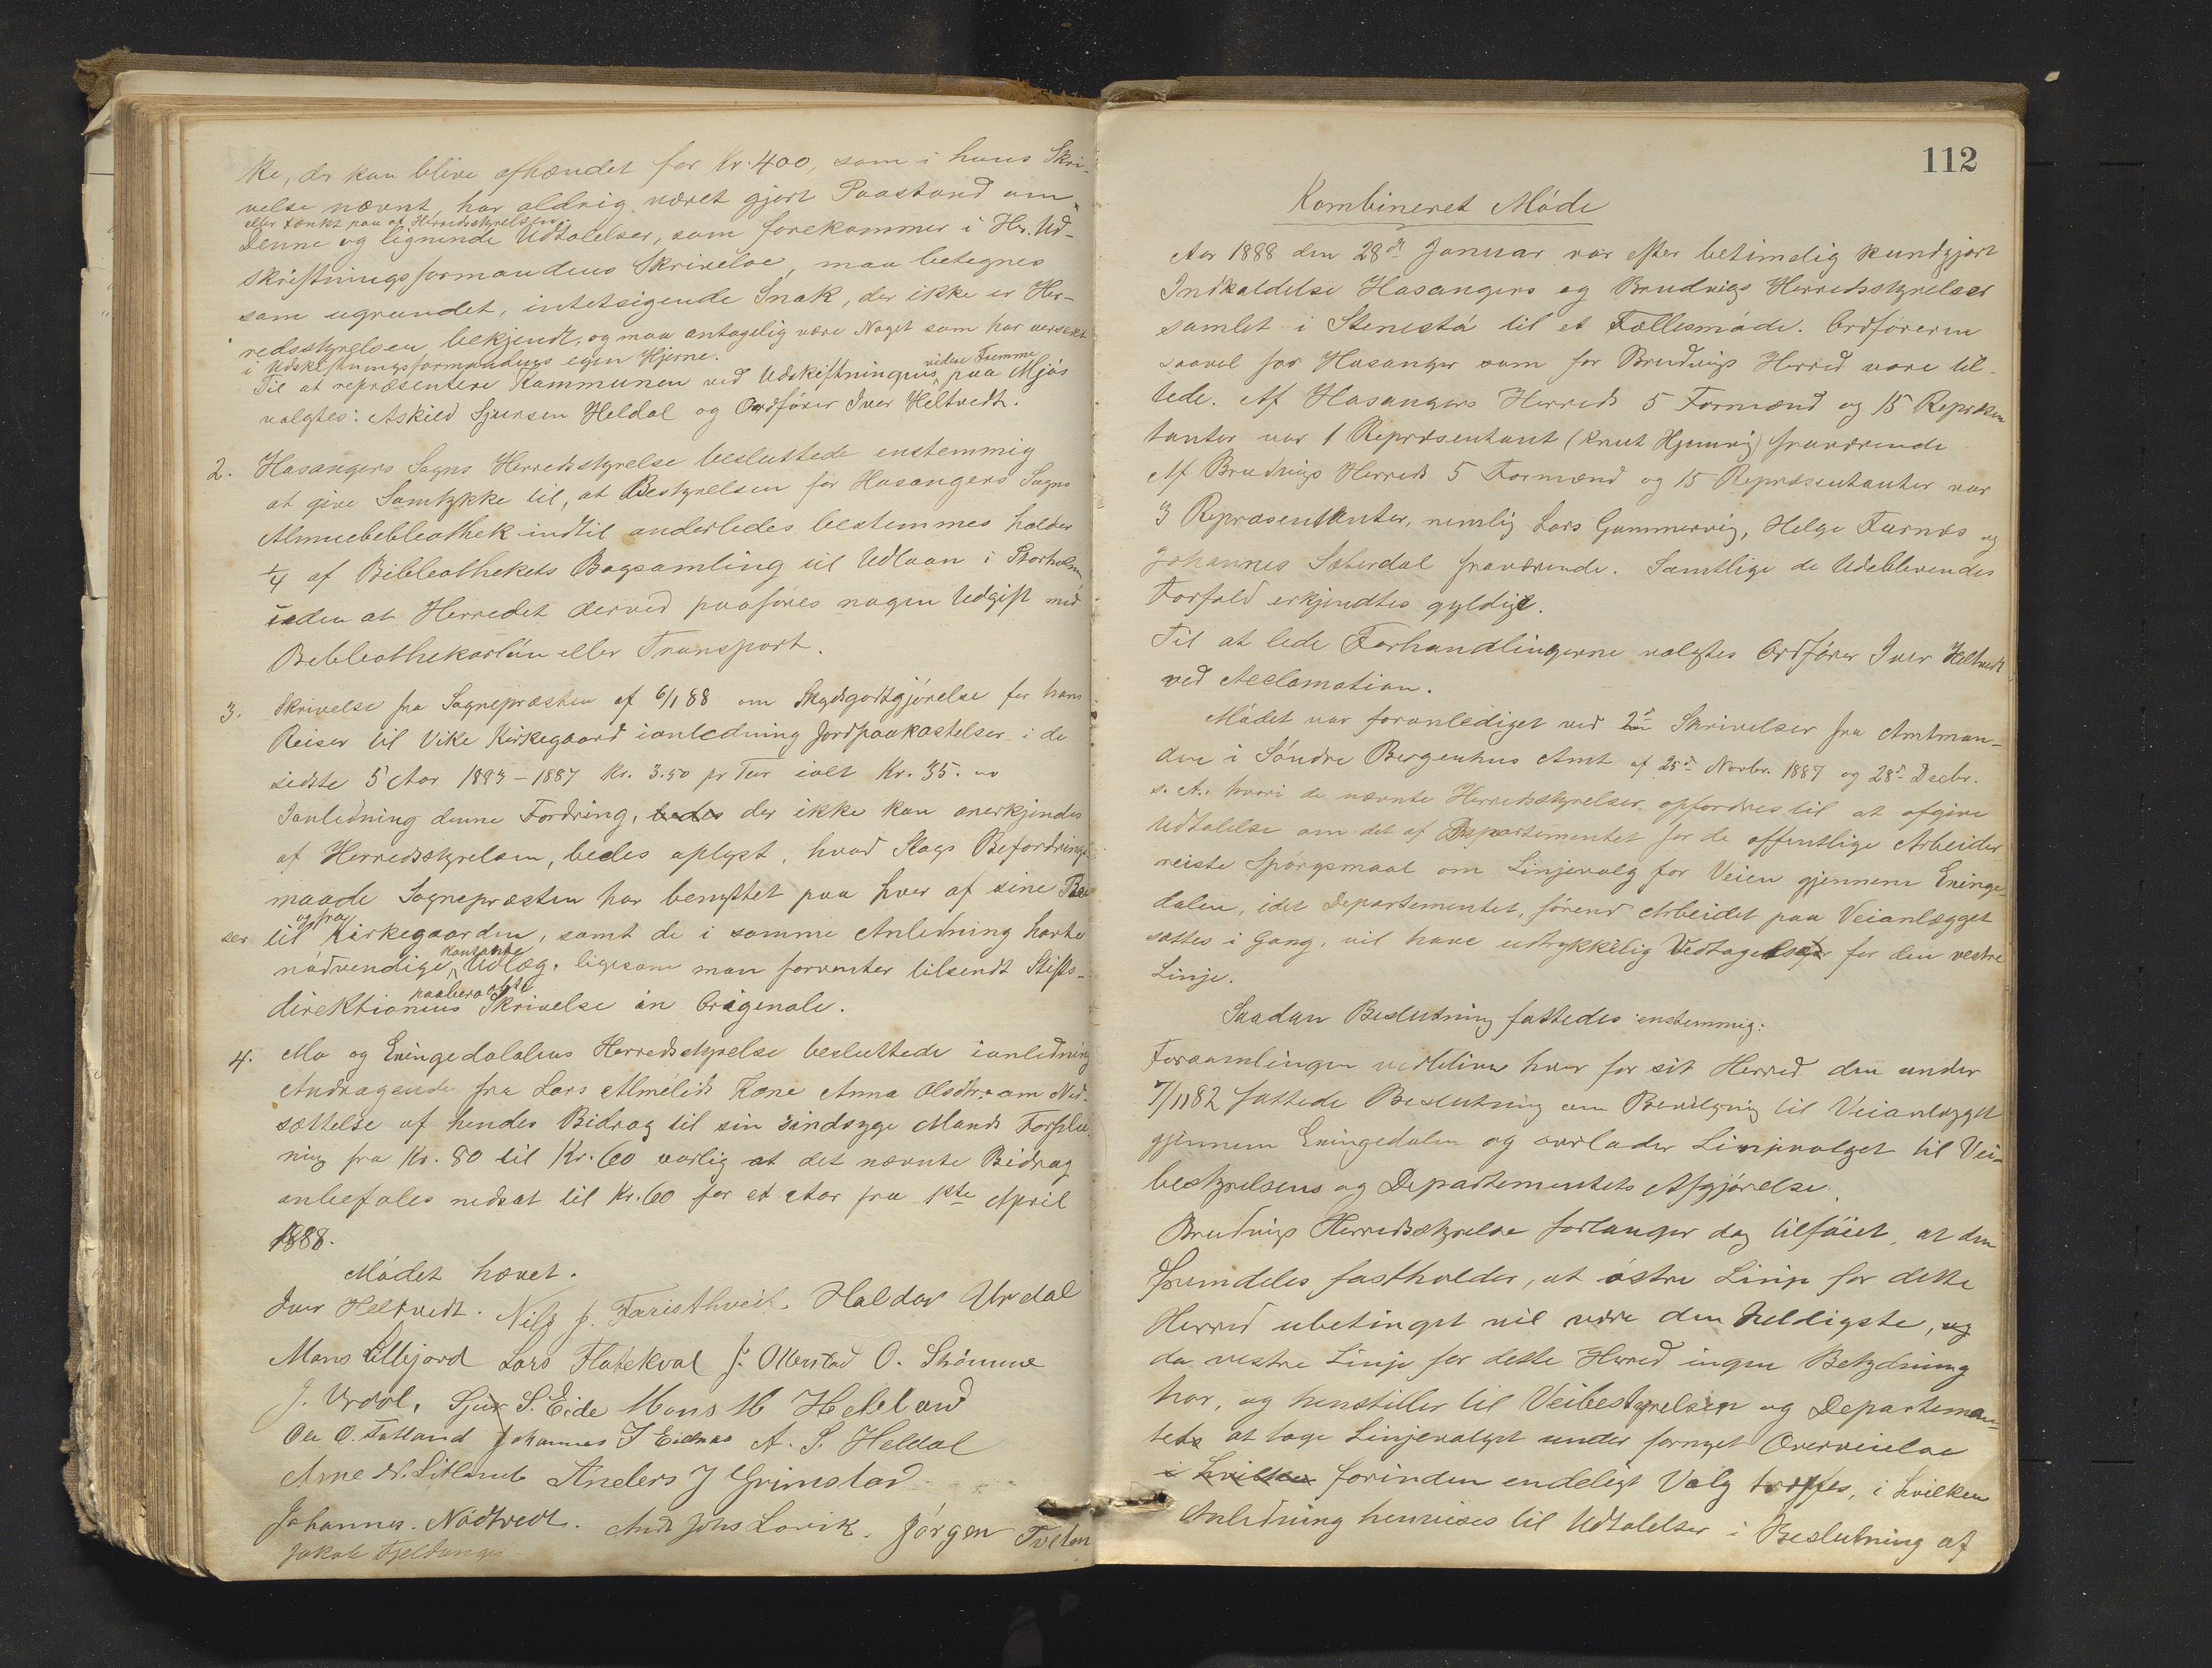 ke, der kan blive afhændet for Kr. 400, som i hans Skri-
velse nævnt har aldrig været gjort Paastand om
eller tænkt paa af Herredsstyrelsen.
Denne og lignende Udtalelser, som forekommer i Hr. Ud-
skiftningsformandens Skrivelse, maa betegnes
som ugrundet, intetsigende Snak, der ikke er Her-
redsstyrelsen bekjendt, og maa antagelig være Noget som har
i Udskiftningsformandens egen Hjerne.
Til at repræsentere Kommunen ved Udskiftningens videre Fremme paa Mjøs
valgtes: Askild Sjursen Heldal og Ordfører Iver Heltvedt.
2. Hosangers Sogns Herredsstyrelse besluttede enstemmig
at give Samtykke til, at Bestyrelsen for Hosangers Sogns
Almuebibliothek indtil anderledes bestemmes holder
1/4 af Bibliothekets Bogsamling til Udlaan i Storholm,
uden at Herredet derved paaføres nogen Udgift med
Bibliothekarløn eller Transport.
3. Skrivelse fra Sognepræsten af 6/1 88 om Skydsgodtgjørelse for hans
Reiser til Vike Kirkegaard ianledning Jordpaakastelser i de
sidste 5 Aar 1883-1887 Kr. 3.50 pr Tur ialt Kr. 35. "
Ianledning denne Fordring, bedes der ikke kan anerkjendes
af Herredsstyrelsen, bedes oplyst, hvad Slags Befordrings
maade Sognepræsten har benyttet paa hver af sine Rei
ser til og fra Kirkegaarden, samt de i samme Anledning havte
nødvendige kontante Udlæg, ligesom man forventer tilsendt Stifts-
direktionens paaberaabte Skrivelse in originale.
4. Mo og Eningedalens Herredsstyrelse besluttede ianledning
Andragende fra Lars Almelids Kone Anna Olsdtr. om Ned-
sættelse af hendes Bidrag til sin sindsyge Mands Forplei-
ning fra Kr. 80 til Kr. 60 aarlig at det nævnte Bidrag
anbefales nedsat til Kr. 60 for et Aar fra 1ste April
1888.
Mødet hævet.
Iver Heltvedt. Nils J. Faristhveit Haldor Urdal
Mons Lillejord Lars Flatekval J. Ollerstad O. Strømme
J. Urdal, Sjur S. Eide Mons M Helland
Ole O. Fatland Johannes J Eidnes A. S. Heldal
Arne N. Litland Anders J Grimstad
Johannes. Nødtvedt. Ands Johs Lovik. Jørgen Tveten
Jakob Fjeldanger
112
Kombineret Møde
Aar 1888 den 28de Januar var efter betimelig kundgjort
Indkaldelse Hosangers og Bruvigs Herredsstyrelser
samlet i Stenestø til et Fællesmøde. Ordføreren
saavel for Hosanger som for Bruvigs Herred vare til-
stede. Af Hosangers Herreds 5 Formænd og 15 Repræsen
tanter var 1 Repræsentant (Knut Hjelmvig) fraværende
Af Bruvigs Herreds 5 Formænd og 15 Repræsentanter var
3 Repræsentanter, nemlig Lars Gammersvig, Helge Furnes og
Johannes Sæterdal fraværende. Samtlige de Udeblevendes
Forfald erkjendtes gyldige.
Til at lede Forhandlingerne valgtes Ordfører Iver Heltvedt
ved Acclamation.
Mødet var foranlediget ved 2de Skrivelser fra Amtman-
den i Søndre Bergenhus Amt af 25de Novbr. 1887 og 28de Decbr.
s. A. hvori de nævnte Herredsstyrelser opfordres til at afgive
Udtalelse om det af Departementet for de offentlige Arbeider
reiste Spørgsmaal om Linjevalg for Veien gjennem Eninge-
dalen, idet Departementet, førend Arbeidet paa Veianlægget
sættes i Gang, vil have udtrykkelig Vedtagelse for den vestre
Linje.
Saadan Beslutning fattedes enstemmig:
Forsamlingen vedbliver hver for sit Herred den under
7/11 82 fattede Beslutning om Bevilgning til Veianlægget
gjennem Eningedalen og overlader Linjevalget til Vei-
bestyrelsens og Departementets Afgjørelse.
Bruvigs Herredsstyrelse forlanger dog tilføiet, at den
fremdeles fastholder, at østre Linje for dette
Herred ubetinget vil være den heldigste, og
da vestre Linje for dette Herred ingen Betydning
har, og henstiller til Veibestyrelsen og Departemen-
tets at tage Linjevalget under fornyet Overveielse
i hvilken forinden endeligt Valg træffes, i hvilken
Anledning henvises til Udtalelser i Beslutning af